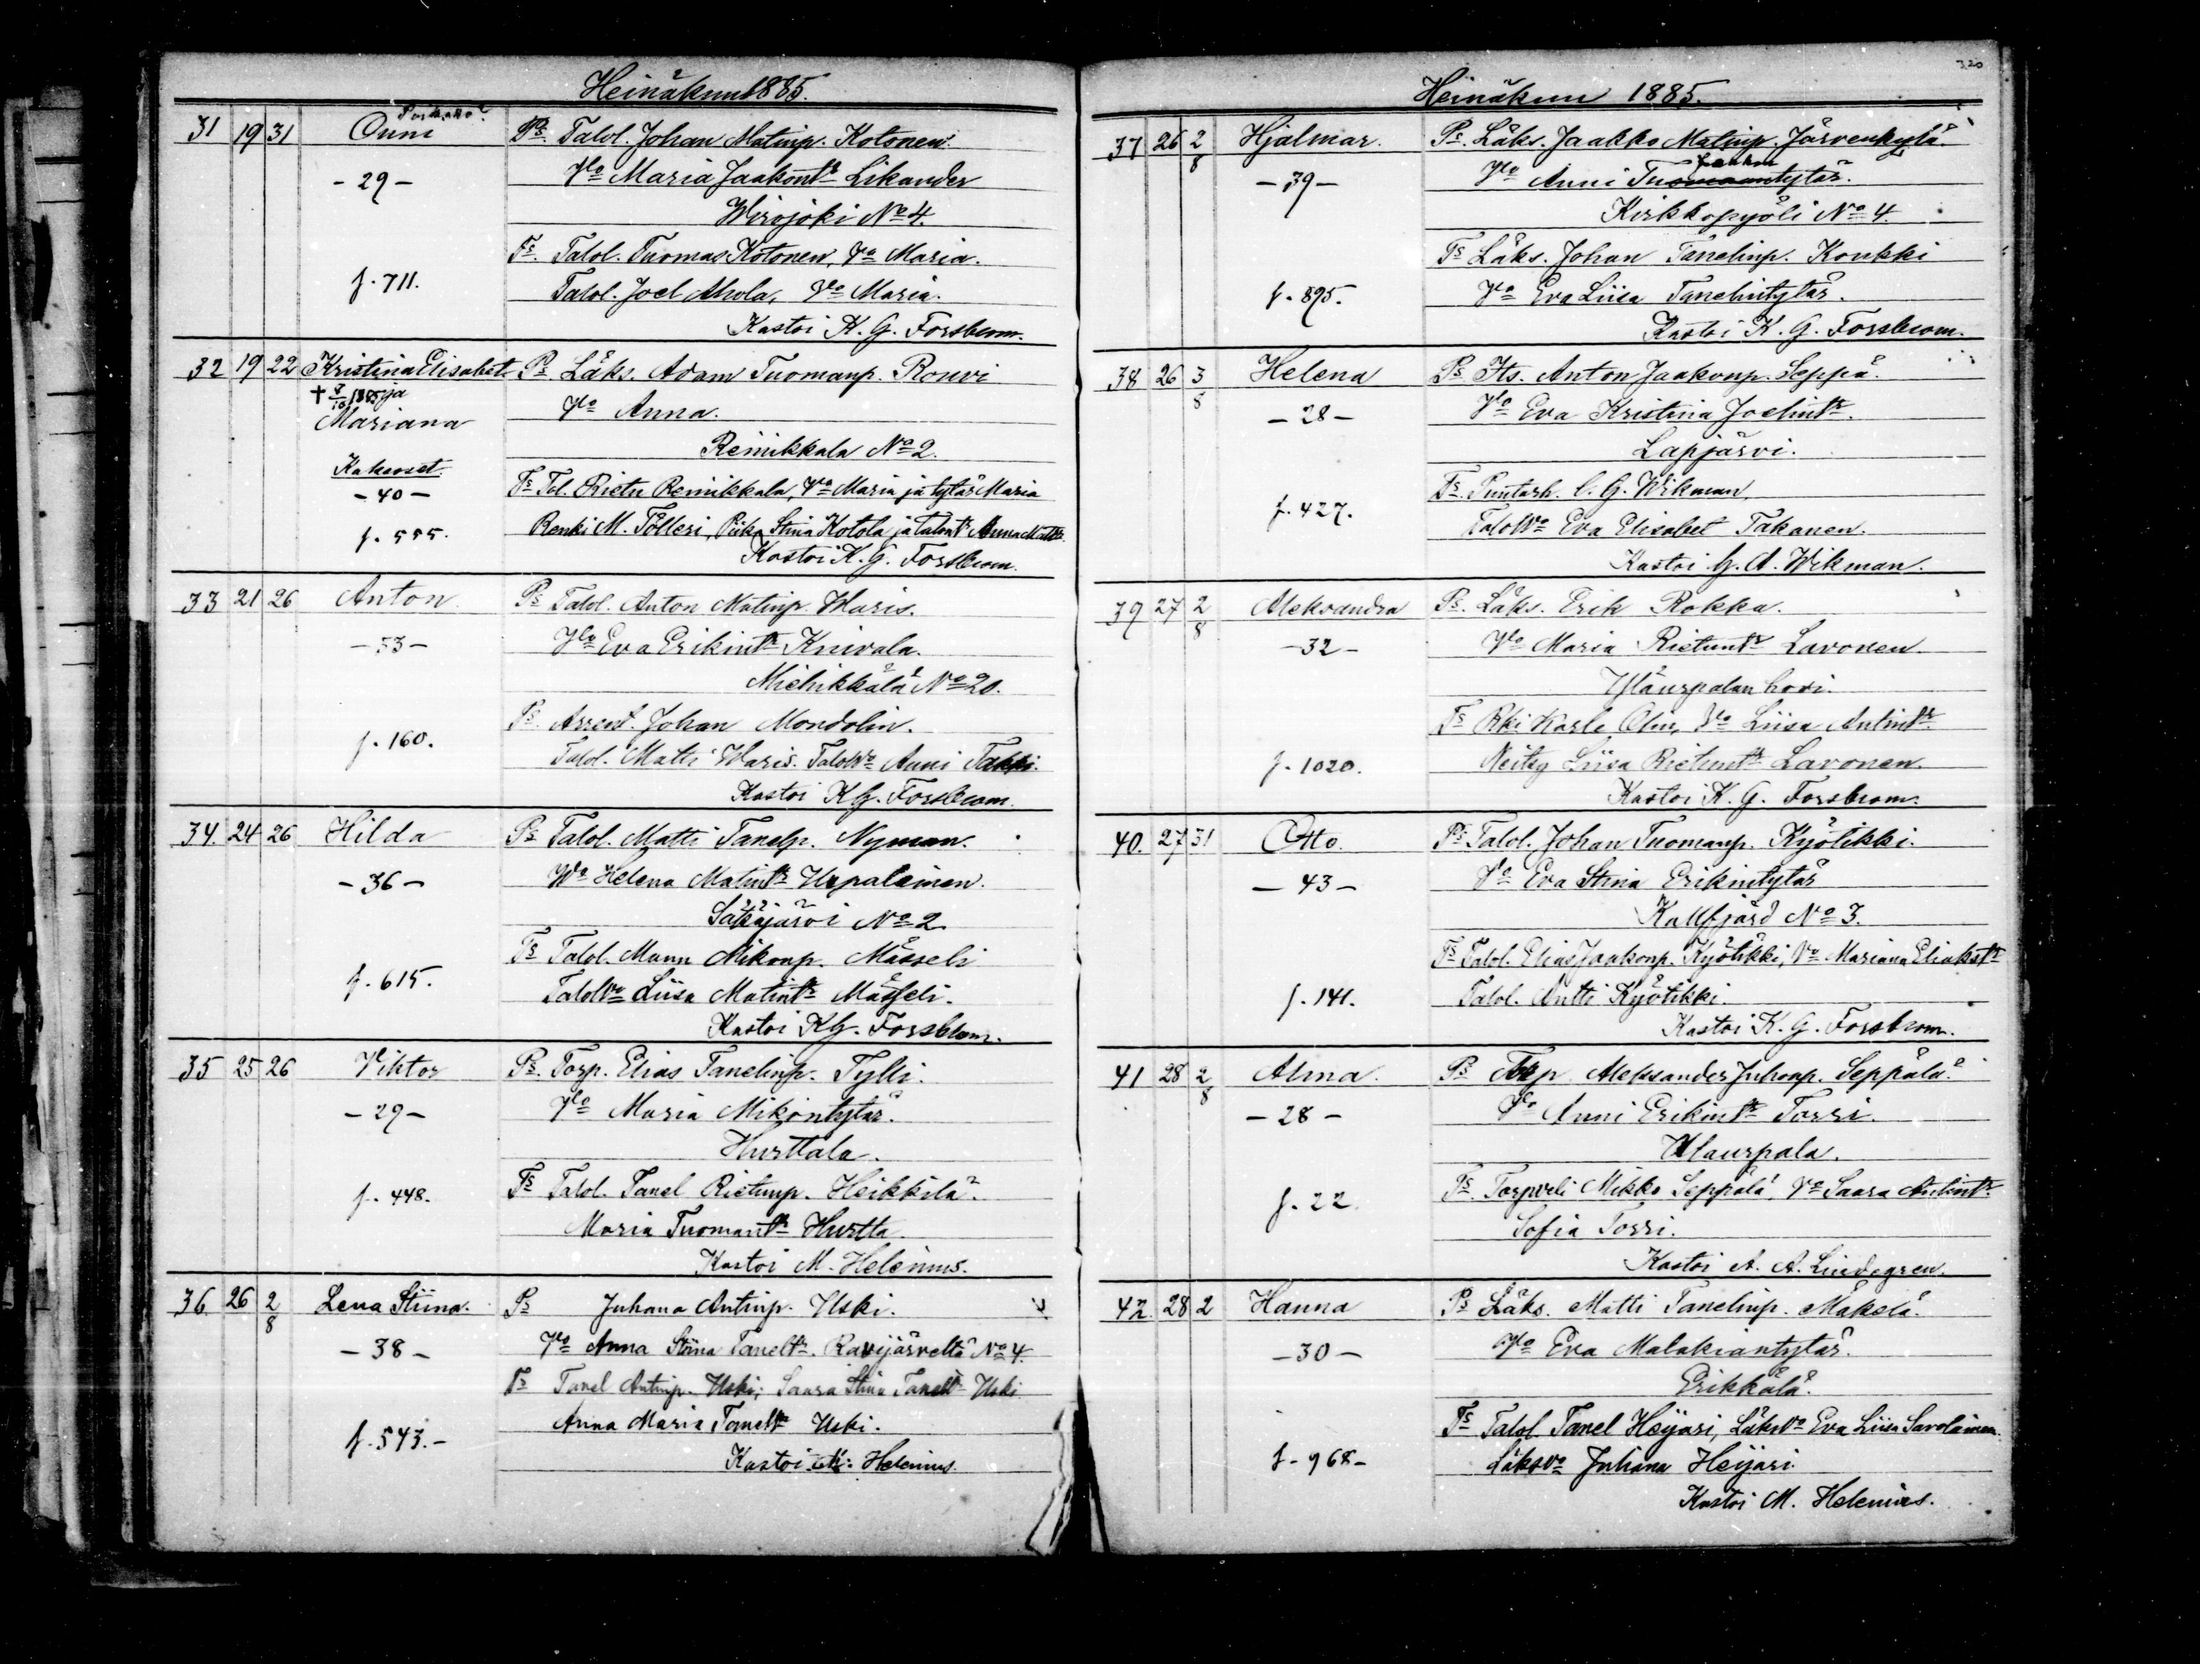 Heinäkuu 1885.
31 19 31 Onni Ps. Talol. Johan Matinp. Kotonen.
- 29 - Vlo Maria Jaakontr Likander
Wirojoki No 4.
Ts. Talol. Tuomas Kotonen, Vo Maria.
f. 711. Talol. Joel Ahola, Vlo Maria.
Kastoi K. G. Forsbrom.
32 19 22 Kristina Elisabet Ps. Läks. Adam Tuomanp. Rouvi
† 8/10 1885 ja
Mariana Vlo Anna.
Reinikkala No 2.
Kaksoset.
- 40 - Ts Tol. Rietu Reinikkala, Vo Maria ja tytär Maria
f. 555. Renki M. Tölleri, Piika Stina Kotola ja talontr Anna Mattr.
Kastoi K. G. Forsbrom.
33 21 26 Anton Ps Talol. Anton Matinp. Waris.
- 53 - Vlo Eva Erikintr Knivala.
Miehikkälä No 20.
Ts. Arrent. Johan Mondolin.
f. 160. Talol. Matti Waris. Talolvo Anni Takki.
Kastoi K. G. Forsbrom.
34. 24 26 Hilda Ps Talol. Matti Tanelp. Nyman.
- 36 - Wo Helena Matintr Urpalainen.
Säkäjärvi No 2
Ts Talol. Manu Mikonp. Mässeli
f. 615. Talolvo Liisa Matintr Mässeli.
Kastoi K. G. Forsbrom.
35 25 26 Viktor Ps. Torp. Elias Tanelinp. Tylli.
- 29 - Vlo Maria Mikontytär.
Hurttala.
f. 448. Ts Talol. Tanel Rietunp. Heikkilä.
Maria Tuomantr Hurtta.
Kastoi M. Helenius.
36 26 2/8 Lena Stiina. Ps Juhana Antinp. Uski.
- 38 - Vlo Anna Stiina Taneltr. Ravijärveltä No 4.
Ts Tanel Antinp. Uski; Saara Stina Taneltr Uski
f. 543.- Anna Maria Taneltr Uski.
Kastoi M. Helenius.
320
Heinäkuu 1885.
37 26 2/8 Hjalmar. Ps. Läks. Jaakko Matinp. Järvenkylä.
Jaakon
- 39 - Vlo Anni Tuomaantytär.
Kirkkopyöli No 4.
Ts Läks. Johan Tanelinp. Koukki
f. 895. Vlo Eva Liisa Tanelintytär.
Kastoi K. G. Forsbrom.
38 26 3/8 Helena Ps Its. Anton Jaakonp. Seppä.
- 28 - Vlo Eva Kristina Joelintr.
Lapjärvi.
f. 427. Ts. Puutarh. C. G. Wikman,
Talolvo Eva Elisabet Takanen.
Kastoi G. A. Wikman.
39 27 2/8 Aleksandra Ps. Läks. Erik Rokka.
- 32 - Vlo Maria Rietuntr Lavonen.
Yläurpalan hovi.
Ts Rki Kaarle Olin, Vlo Liisa Antintr.
f. 1020. Neitsy Liisa Rietuntr Lavonen.
Kastoi K. G. Forsbrom.
40. 27 31 Otto. Ps Talol. Johan Tuomanp. Kyötikki.
- 43 - Vo Eva Stina Erikintytär
Kallfjärd No 3.
Ts Talol. Elias Jaakonp. Kyötikki, Vo Mariana Eliakstr
f. 141. Talol. Antti Kyötikki.
Kastoi K. G. Forsbrom.
41 28 2/8 Alma. Ps Torp. Aleksander Juhonp. Seppälä.
- 28 - Vlo Anni Erikintr Torri.
Ylaurpala.
f. 22. Ts. Torpveli Mikko Seppälä, Vo Saara Antintr.
Sofia Torri.
Kastoi A. A. Lindegren.
42. 28 2 Hanna Ps Läks. Matti Tanelinp. Mäkelä.
- 30 - Vlo Eva Malakiantytär.
Erikkälä.
Ts Talol Tanel Heijari, Läksvo Eva Liisa Savolainen.
f - 968 - Läksvo Juhana Heijari.
Kastoi M. Helenius.